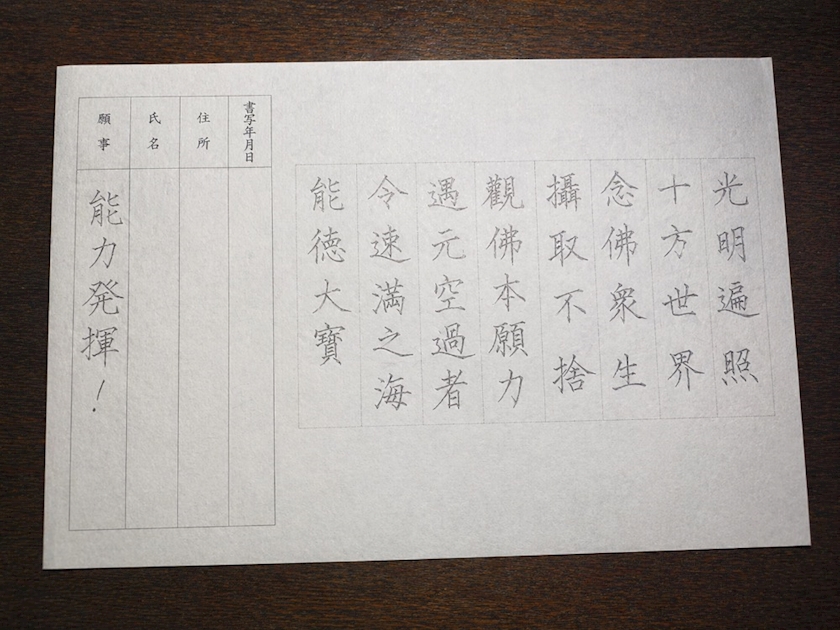 光明遍照
十方世界
念佛衆生
攝取不捨
觀佛本願力
遇元空過者
令速満之海
能徳大寶
書写年月日
住所
氏名
願事
能力発揮！